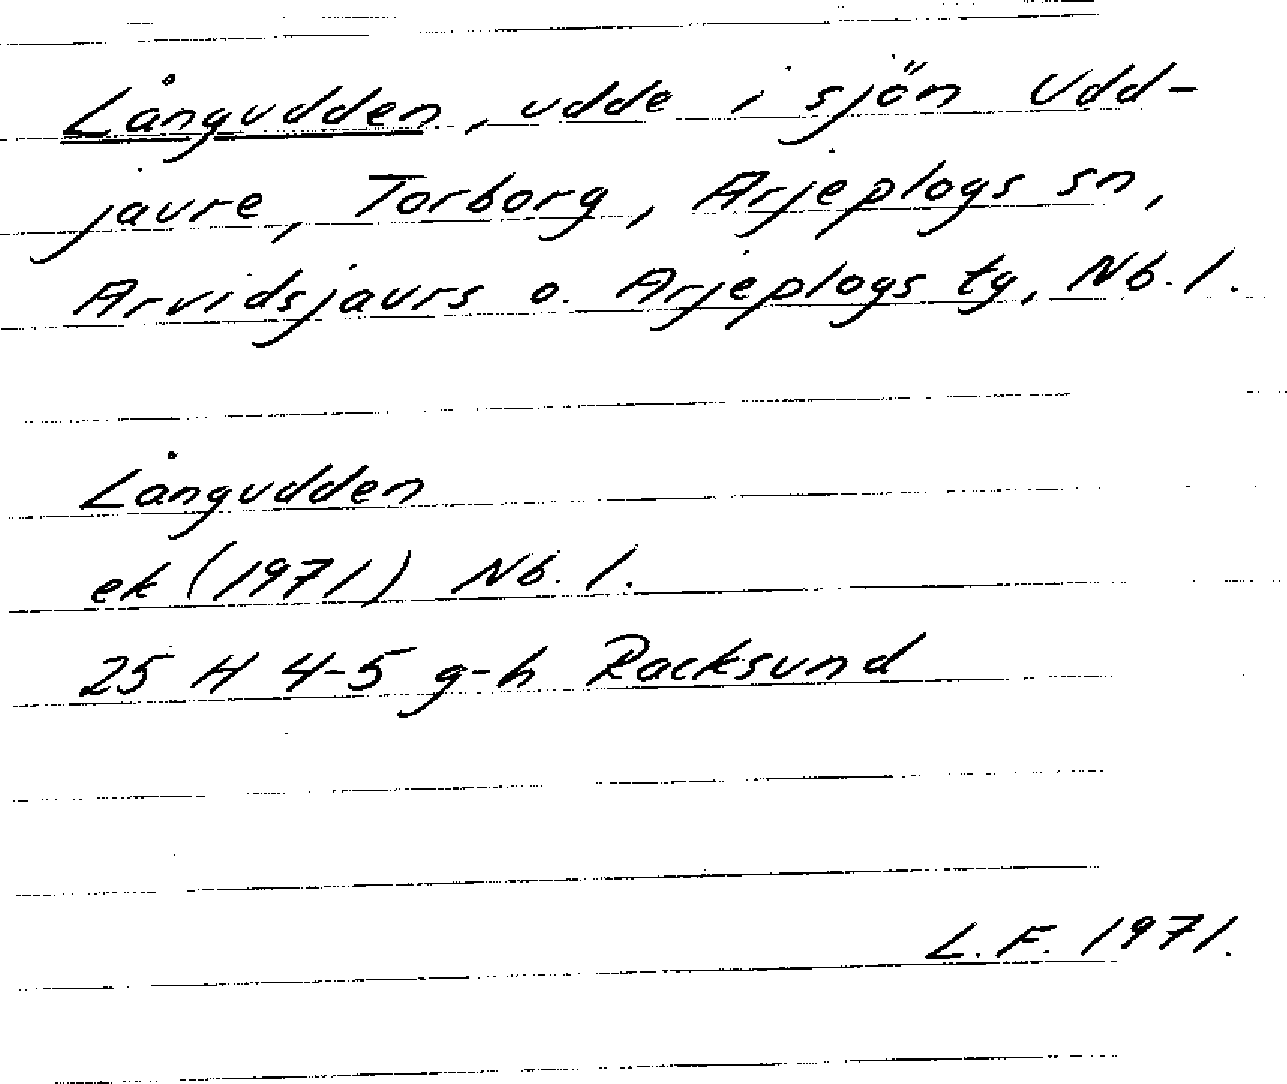 Långudden, udde i sjön Udd-
jaure, Torborg, Arjeplogs sn,
Arvidsjaurs o. Arjeplogs tg, Nb. l.
Långudden
ek (1971) Nb. l.
25 H 4-5 g-h Racksund
L. F. 1971.